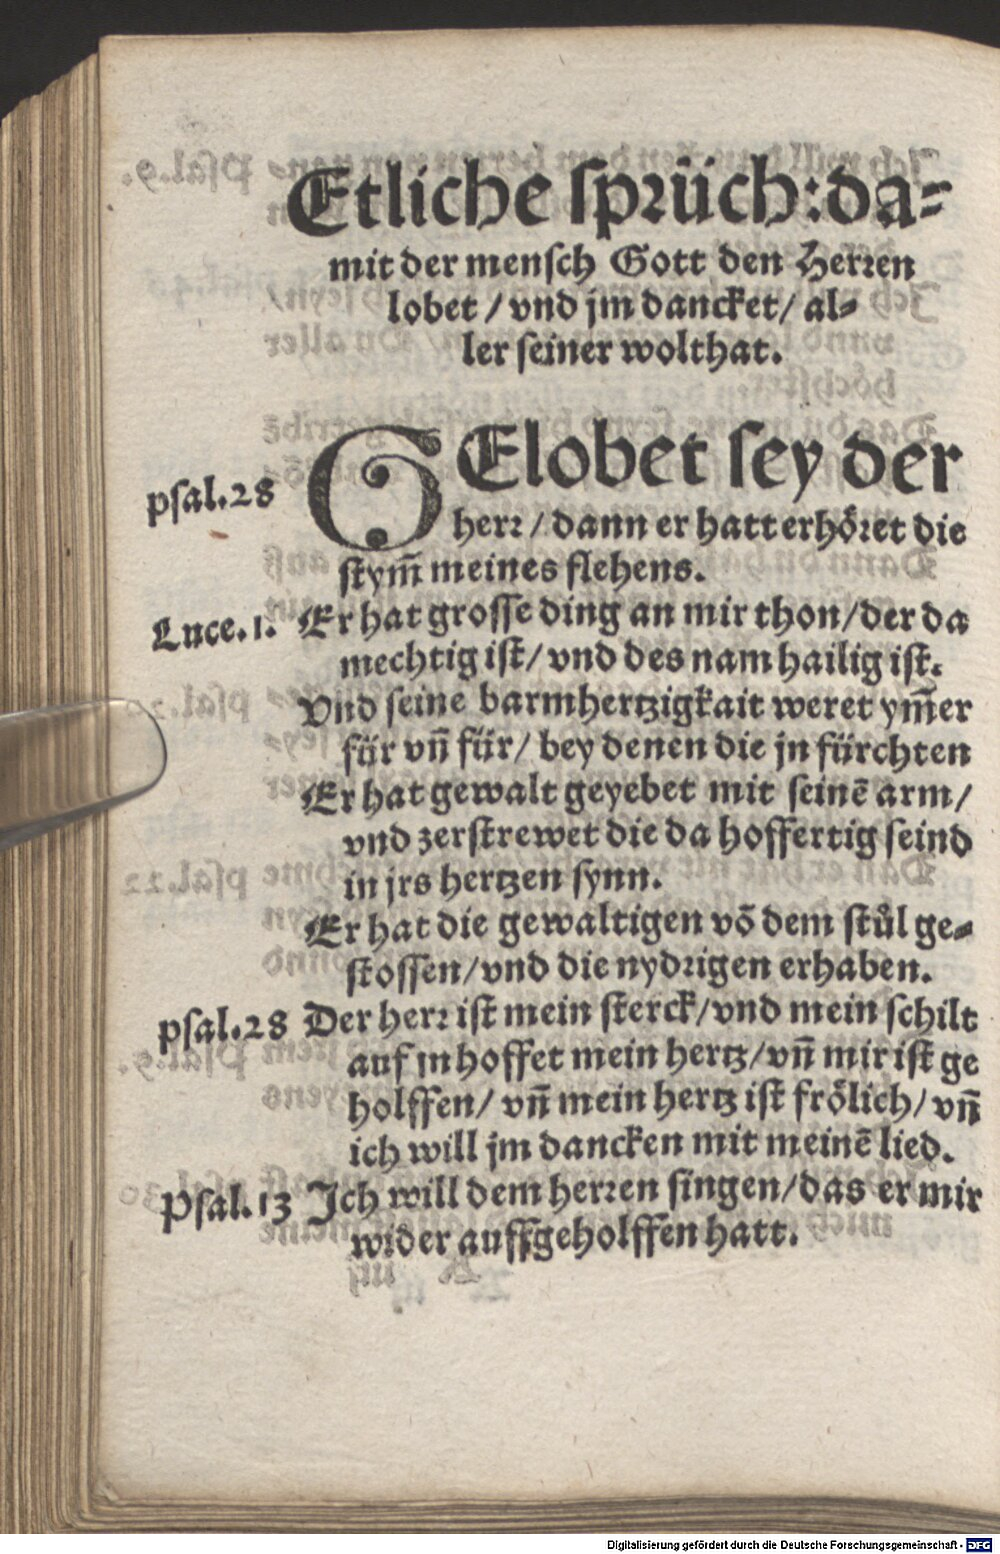 Etliche ſprüch: da-
mit der menſch Gott den Herren
lobet / vnd jm dancket / al-
ler ſeiner wolthat.
psal.28
GElobet ſey der
herr / dann er hatt erhöret die
ſtym̃ meines flehens.
Luce.1.
Er hat groſſe ding an mir thon / der da
mechtig iſt / vnd des nam hailig iſt.
Vnd ſeine barmhertzigkait weret ym̃er
für vñ für / bey denen die jn fürchten
Er hat gewalt geyebet mit ſeinẽ arm /
vnd zerſtrewet die da hoffertig ſeind
in jrs hertzen ſynn.
Er hat die gewaltigen võ dem ſtůl ge-
ſtoſſen / vnd die nydrigen erhaben.
psal.28
Der herr iſt mein ſterck / vnd mein ſchilt
auf jn hoffet mein hertz / vñ mir iſt ge
holffen / vñ mein hertz iſt frölich / vñ
ich will jm dancken mit meinẽ lied.
Psal.13
Ich will dem herren ſingen / das er mir
wider auffgeholffen hatt.
Digitalisierung gefördert durch die Deutsche Forschungsgemeinschaft - DFG